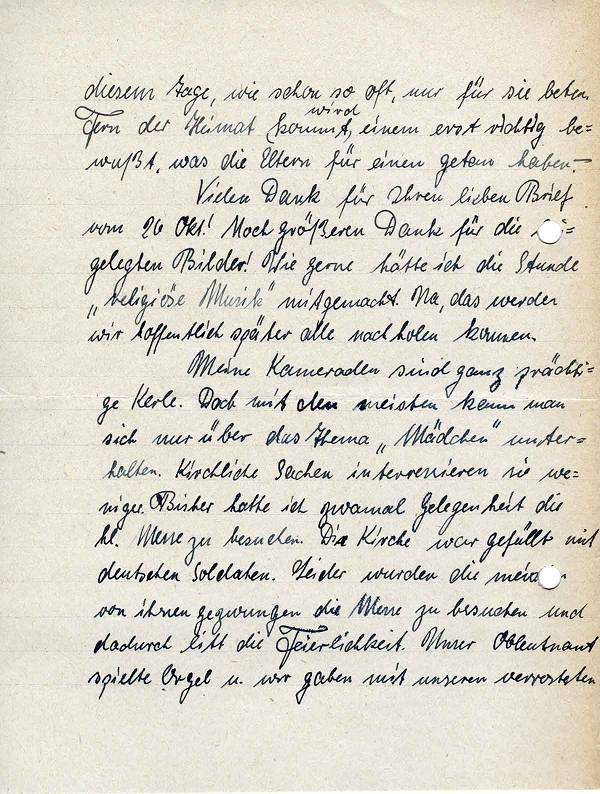 diesem Tage, wie schon so oft, nur für sie beten.
wird
Fern der Heimat kommt, einem erst richtig be-
wußt, was die Eltern für einen getan haben.-
Vielen Dank für Ihren lieben Brief
vom 26 Okt! Noch größeren Dank für die
gelegten Bilder! Wie gerne hätte ich die Stunde
„religiöse Musik" mitgemacht. Na, das werden
wir hoffentlich später alle nachholen können.
Meine Kameraden sind ganz prächti=
ge Kerle. Doch mit den meisten kann man
sich nur über das Thema „Mädchen" unter-
halten. Kirchliche Sachen interressieren sie we=
niger. Bisher hatte ich zwamal Gelegenheit die
hl. Messe zu besuchen. Die Kirche war gefüllt mit
deutschen Soldaten. Leider wurden die
von ihnen gezwungen die Messe zu besuchen und
dadurch litt die Feierlichkeit. Unser Obleutnant
spielte Orgel u. wir gaben mit unseren verrosteten